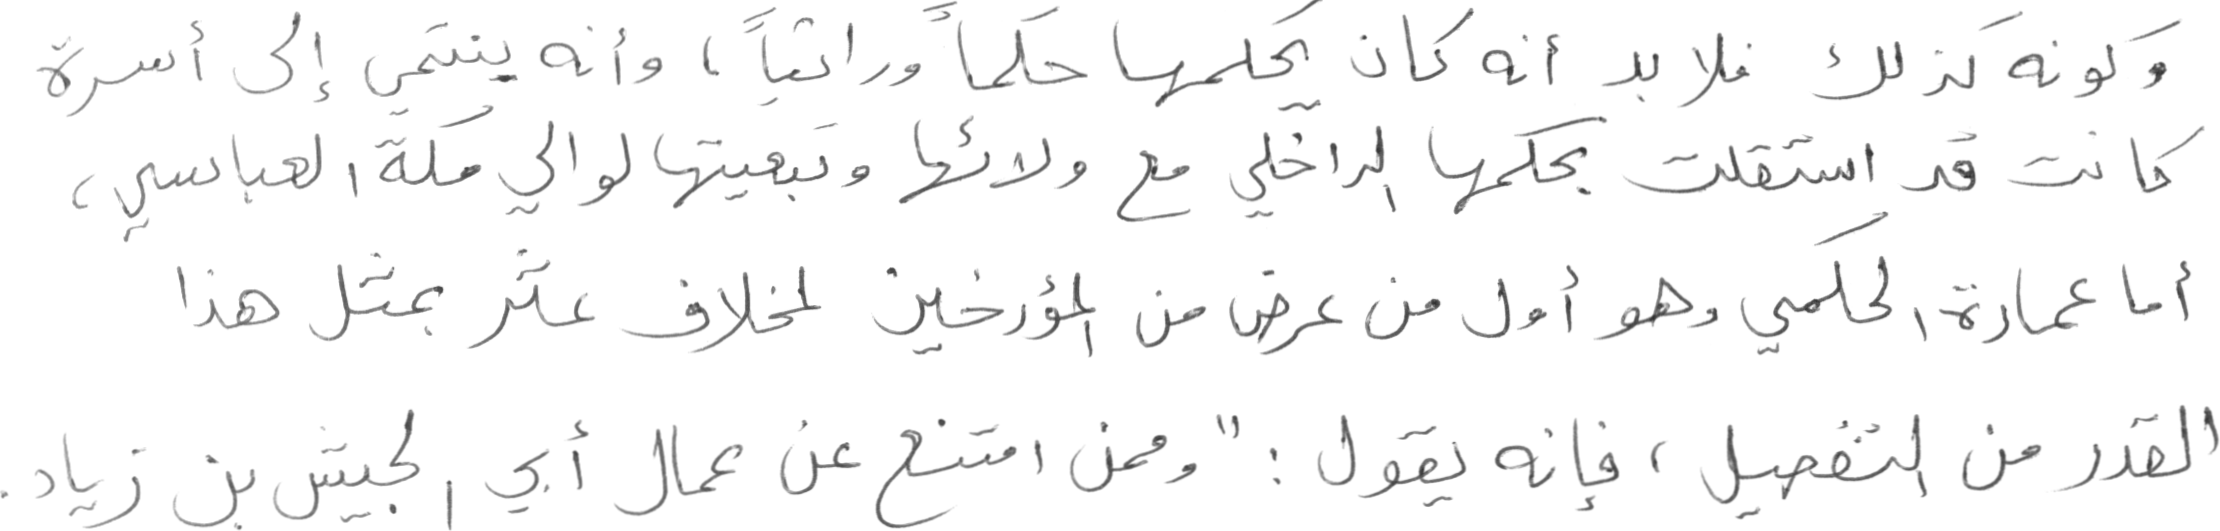 وكونه كذلك فلا بد أنه كان يحكمها حكماً وراثياً، وأنه ينتمي إلى أسرة
كانت قد استقلت بحكمها الداخلي مع ولائها وتبعيتها لوالي مكة العباسي،
أما عمارة الحكمي وهو أول من عرض من المؤرخين لمخلاف عثر بمثل هذا
القدر من التفصيل، فإنه يقول: "وممن امتنع عن عمال أبي الجيش بن زياد.